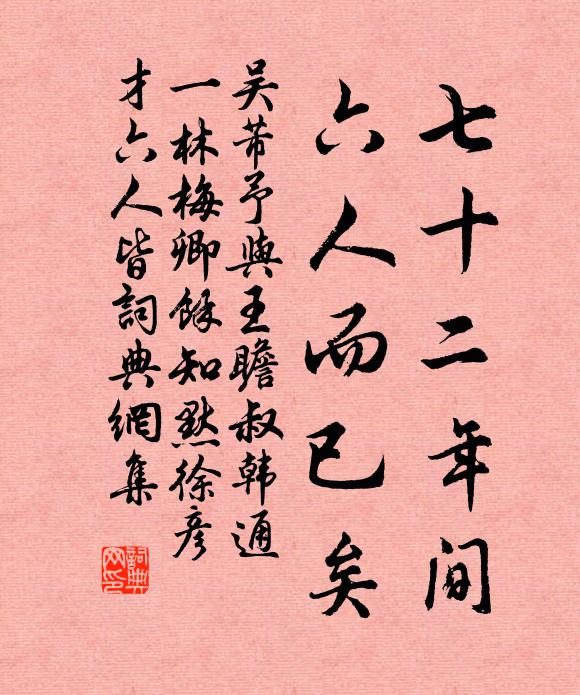 七十二年间
六人而已矣
吴芾予與王瞻叔韩通
一林梅卿餘知默徐彦
才六人皆詞典網集
詞典網印